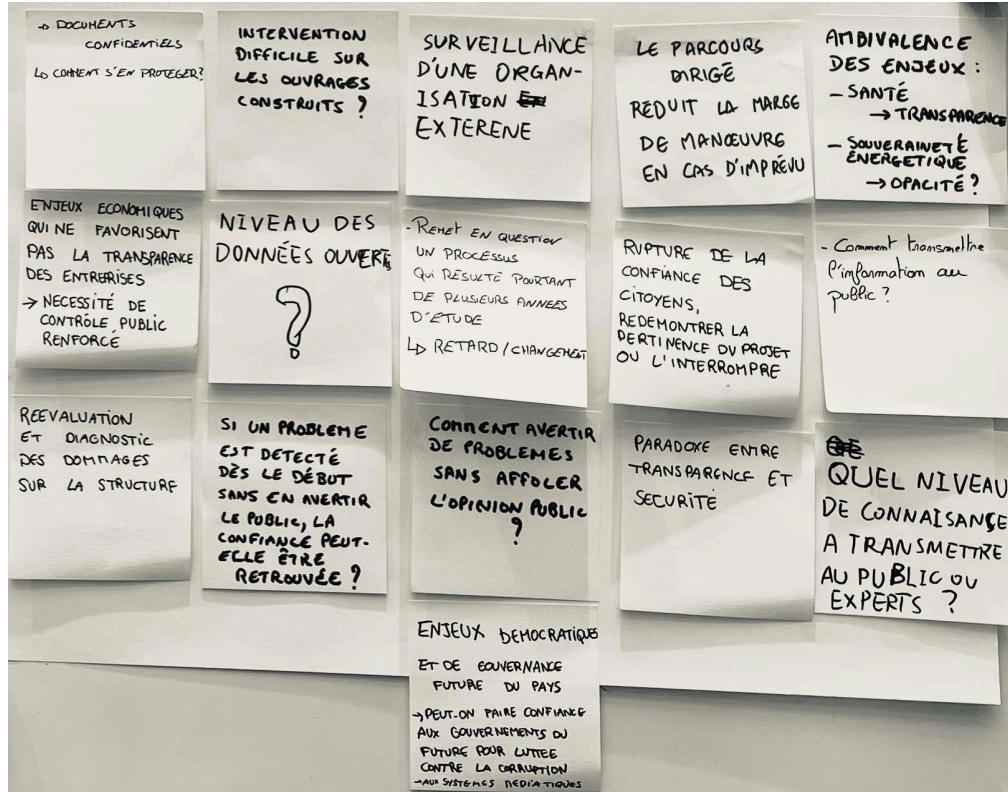 → DOCUMENTS
CONFIDENTIELS
↳ COMMENT S'EN PROTEGER?
INTERVENTION
DIFFICILE SUR
LES OUVRAGES
CONSTRUITS ?
SURVEILLANCE
D'UNE ORGAN-
ISATION
EXTERENE
LE PARCOURS
DIRIGÉ
RÉDUIT LA MARGE
DE MANŒUVRE
EN CAS D'IMPRÉVU
AMBIVALENCE
DES ENJEUX :
- SANTÉ
→ TRANSPARENCE
- SOUVERAINETÉ
ÉNERGETIQUE
→ OPACITÉ ?
ENJEUX ECONOMIQUES
QUI NE FAVORISENT
PAS LA TRANSPARENCE
DES ENTREPRISES
→ NECESSITÉ DE
CONTRÔLE PUBLIC
RENFORCÉ
NIVEAU DES
DONNÉES OUVERTE
?
- REMET EN QUESTION
UN PROCESSUS
QUI RÉSULTE POURTANT
DE PLUSIEURS ANNEES
D'ETUDE
↳ RETARD / CHANGEMENT
RUPTURE DE LA
CONFIANCE DES
CITOYENS,
REDEMONTRER LA
PERTINENCE DU PROJET
OU L'INTERROMPRE
- Comment transmettre
l'information au
public ?
REEVALUATION
ET DIAGNOSTIC
DES DOMMAGES
SUR LA STRUCTURE
SI UN PROBLEME
EST DETECTÉ
DÈS LE DÉBUT
SANS EN AVERTIR
LE PUBLIC, LA
CONFIANCE PEUT-
ELLE ÊTRE
RETROUVÉE ?
COMMENT AVERTIR
DE PROBLEMES
SANS AFFOLER
L'OPINION PUBLIC
?
PARADOXE ENTRE
TRANSPARENCE ET
SECURITÉ
QUEL NIVEAU
DE CONNAISANCE
A TRANSMETTRE
AU PUBLIC OU
EXPERTS ?
ENJEUX DEMOCRATIQUES
ET DE GOUVERNANCE
FUTURE DU PAYS
→ PEUT-ON FAIRE CONFIANCE
AUX GOUVERNEMENTS DU
FUTURE POUR LUTTEE
CONTRE LA CORRUPTION
→ AUX SYSTEMES MEDIATIQUES